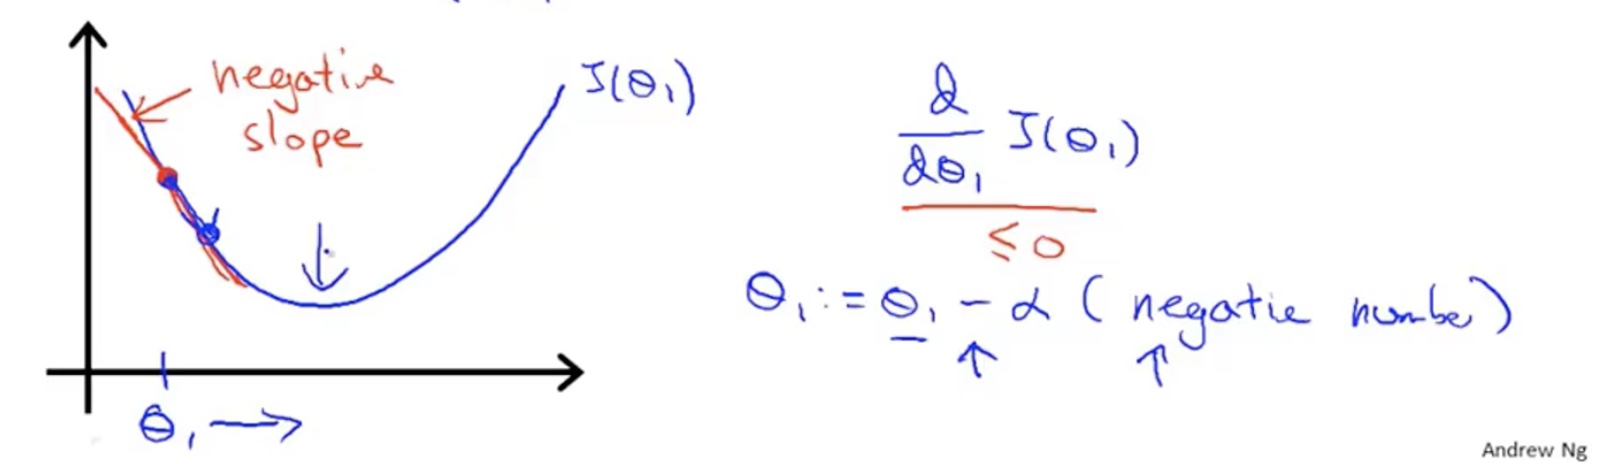 negative
slope
J(θ₁)
d
dθ₁
J(θ₁)
≤ 0
θ₁ := θ₁ - α ( negatie number)
θ₁
Andrew Ng